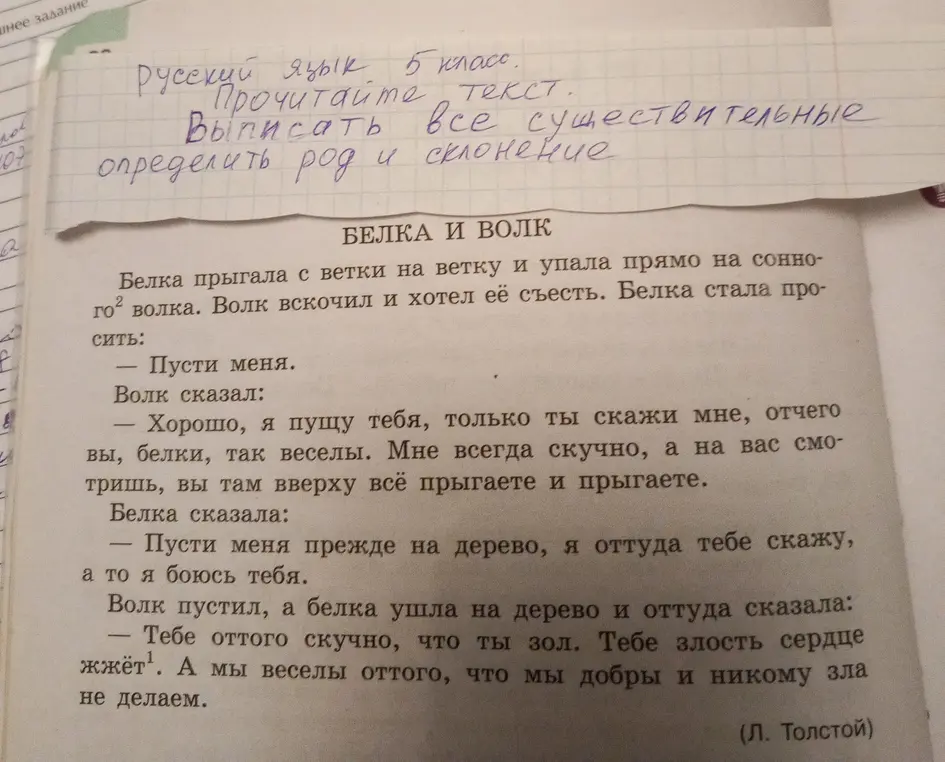 шнее задание
Русский язык 5 класс.
Прочитайте текст.
Выписать все существительные
определить род и склонение
БЕЛКА И ВОЛК
Белка прыгала с ветки на ветку и упала прямо на сонно-
го² волка. Волк вскочил и хотел её съесть. Белка стала про-
сить:
— Пусти меня.
Волк сказал:
— Хорошо, я пущу тебя, только ты скажи мне, отчего
вы, белки, так веселы. Мне всегда скучно, а на вас смо-
тришь, вы там вверху всё прыгаете и прыгаете.
Белка сказала:
— Пусти меня прежде на дерево, я оттуда тебе скажу,
а то я боюсь тебя.
Волк пустил, а белка ушла на дерево и оттуда сказала:
— Тебе оттого скучно, что ты зол. Тебе злость сердце
жжёт¹. А мы веселы оттого, что мы добры и никому зла
не делаем.
(Л. Толстой)